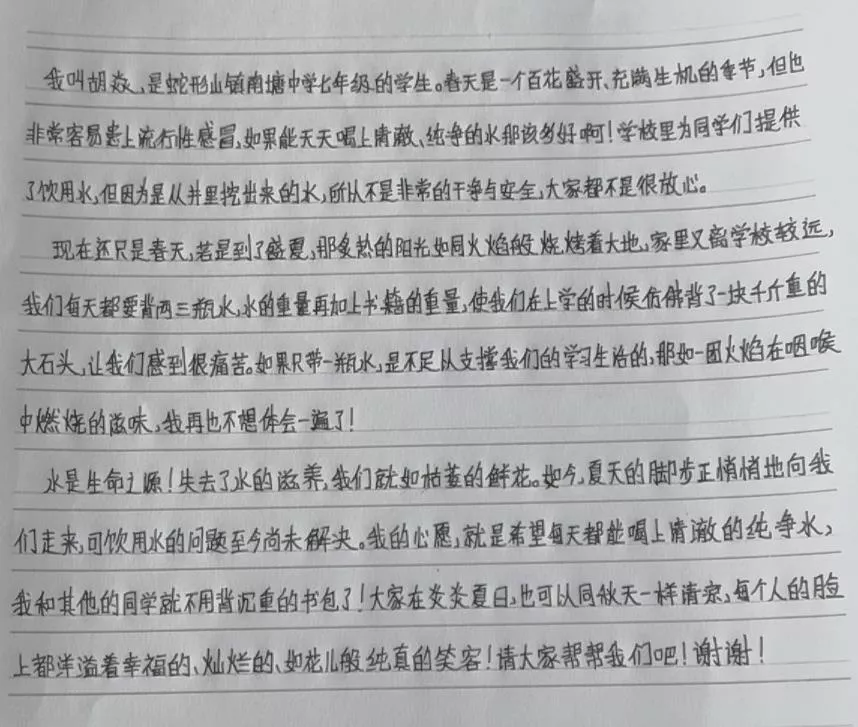 我叫胡焱,是蛇形山镇南塘中学七年级的学生。春天是一个百花盛开、充满生机的季节,但也
非常容易患上流行性感冒,如果能天天喝上清澈、纯净的水那该多好啊!学校里为同学们提供
了饮用水,但因为是从井里挖出来的水,所以不是非常的干净与安全,大家都不是很放心。
现在还只是春天,若是到了盛夏,那炙热的阳光如同火焰般烧烤着大地,家里又离学校较远,
我们每天都要背两三瓶水,水的重量再加上书籍的重量,使我们在上学的时候仿佛背了一块千斤重的
大石头,让我们感到很痛苦。如果只带一瓶水,是不足以支撑我们的学习生活的,那如一团火焰在咽喉
中燃烧的滋味,我再也不想体会一遍了!
水是生命之源!失去了水的滋养,我们就如枯萎的鲜花。如今,夏天的脚步正悄悄地向我
们走来,可饮用水的问题至今尚未解决。我的心愿,就是希望每天都能喝上清澈的纯净水,
我和其他的同学就不用背沉重的书包了!大家在炎炎夏日,也可以同秋天一样清凉,每个人的脸
上都洋溢着幸福的、灿烂的、如花儿般纯真的笑容!请大家帮帮我们吧!谢谢!